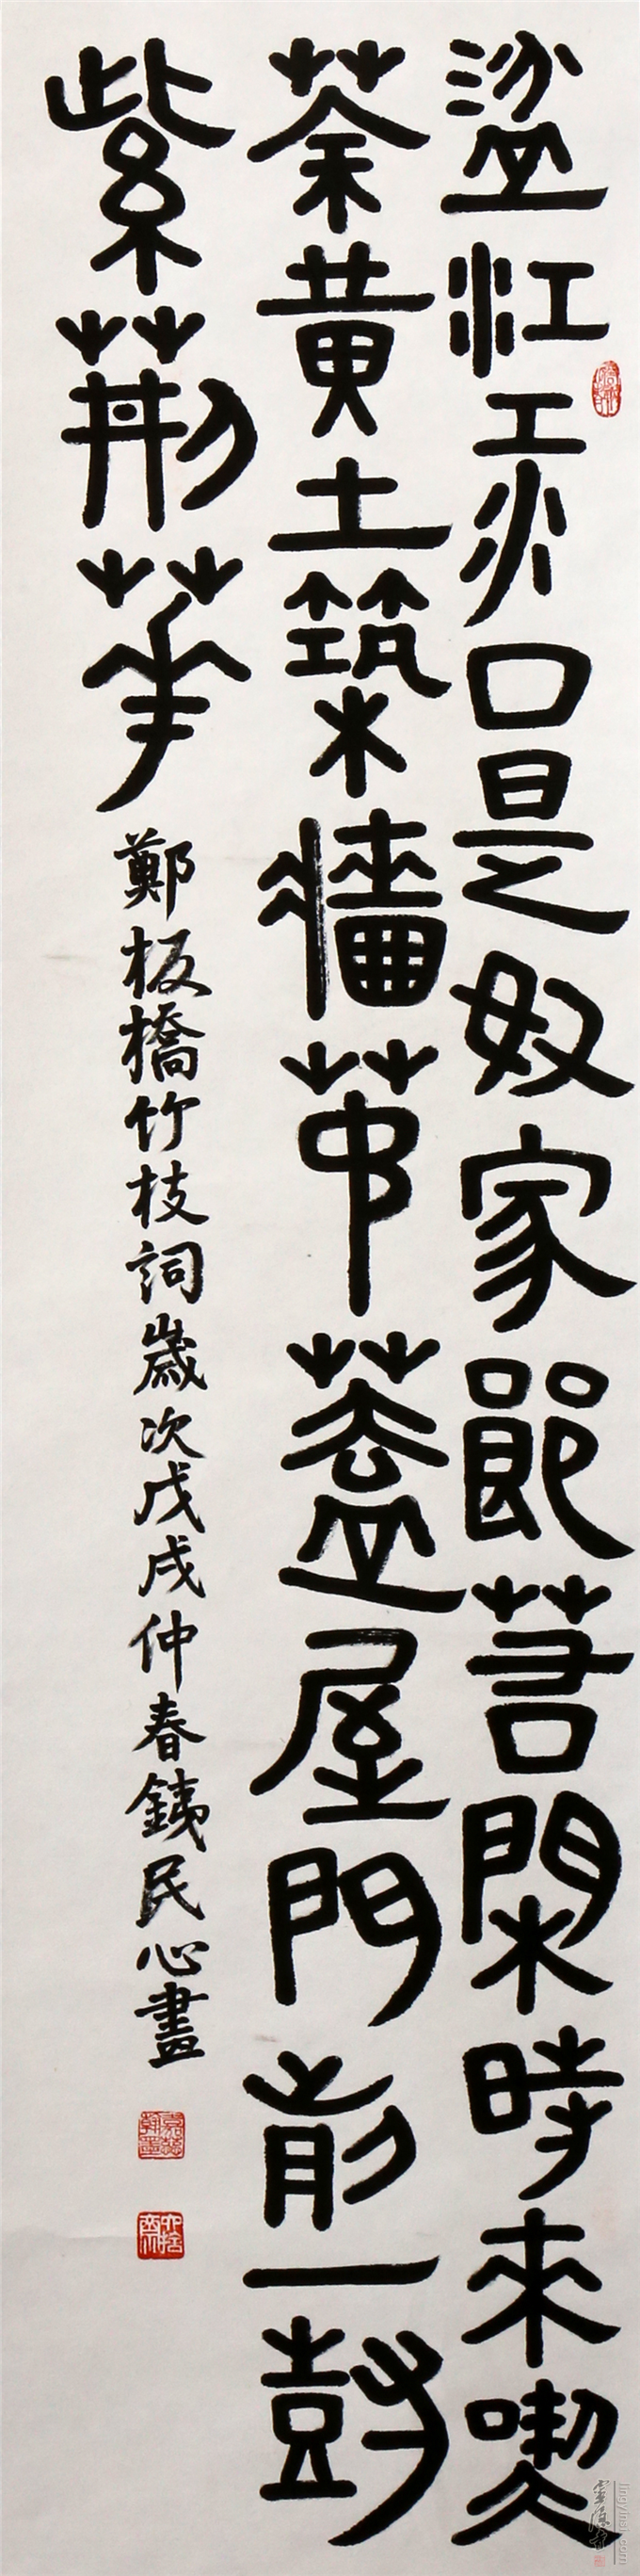 湓江江口是奴家郎若閑時來喫
荼黃土築牆茅蓋屋門前一尌
紫荊華
鄭板橋竹枝詞歲次戊戌仲春銕民心畫